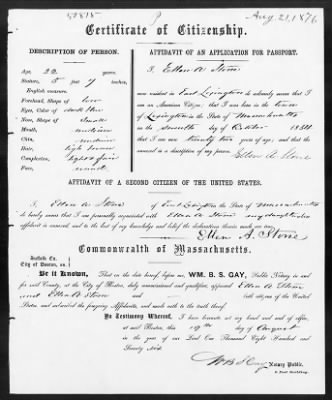 50818
Aug. 21, 1876
Certificate of Citizenship.
DESCRIPTION OF PERSON.
Age, 22 years.
Stature, 5 feet 7 inches,
English measure.
Forehead, Shape of low
Eyes, Color of
Nose, Shape of small
Mouth, medium
Chin, medium
Hair, light brown
Complexion, light & fair
Face, round
AFFIDAVIT OF AN APPLICATION FOR PASSPORT.
I, Ellen A Stone
now resident in East Lexington do solemnly swear that I am
an American Citizen; that I was born in the town
of Lexington in the State of Massachusetts
on the seventh day of October 1854
that I am twenty two years of age; and that the
annexed is a description of my person.
Ellen A. Stone
AFFIDAVIT OF A SECOND CITIZEN OF THE UNITED STATES.
I, Ellen A Stone of East Lexington in the State of Massachusetts
do hereby swear that I am personally acquainted with Ellen A Stone my daughter whose
affidavit is annexed, and to the best of my knowledge and belief the declarations therein made are true.
Ellen A. Stone
Commonwealth of Massachusetts.
Suffolk Ss.
City of Boston, ss.
Be it Known, That on the date hereof, before me, WM. B. S. GAY, Public Notary in and
for said County, at the City of Boston, duly commissioned and qualified, appeared Ellen A Stone
and Ellen A Stone citizens of the United
States and subscribed the foregoing Affidavits, and made oath to the truth thereof.
In Testimony Whereof, I have hereunto set my hand and seal of office,
at said Boston, this 19th day of August
in the year of our Lord One Thousand Eight Hundred and
Seventy Six
W B S Gay
Notary Public.